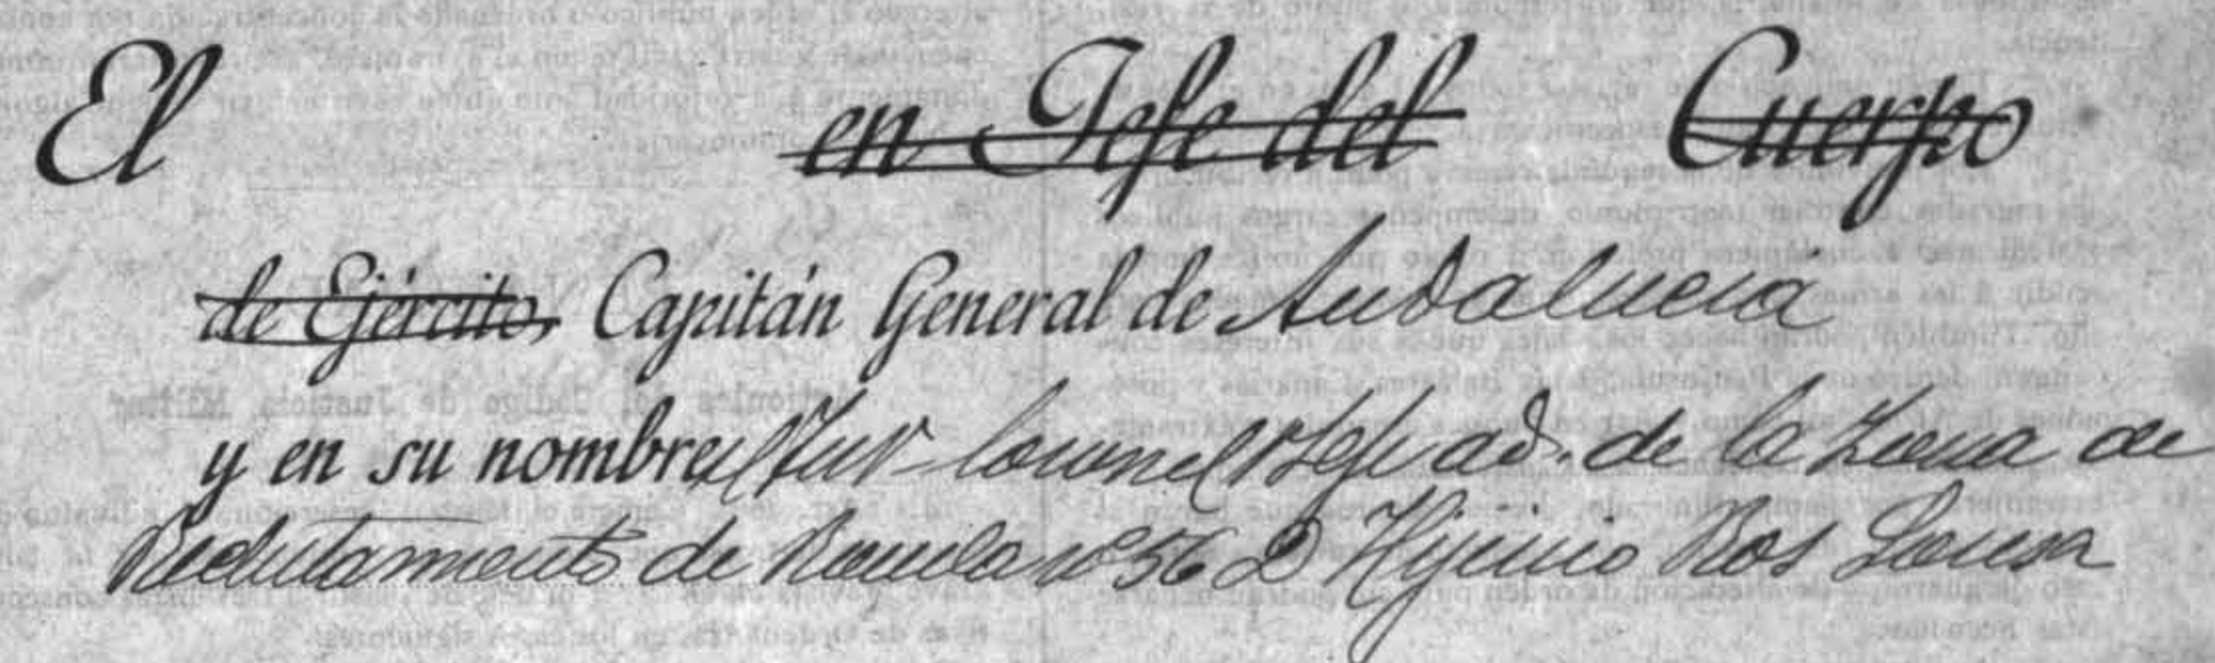 El en Jefe del Cuerpo
de Ejército, Capitán General de Andalucia
y en su nombre el Tte Coronel Jefe ad. de la Zona de
Reclutamiento de Ronda nº 56 D Hijinio Ros